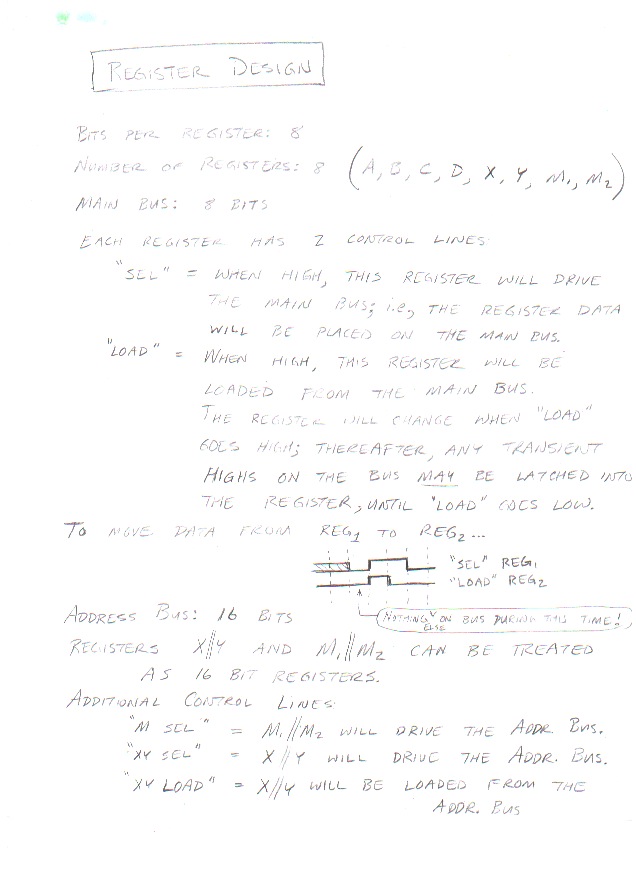 REGISTER DESIGN
BITS PER REGISTER: 8
NUMBER OF REGISTERS: 8 (A, B, C, D, X, Y, M1, M2)
MAIN BUS: 8 BITS
EACH REGISTER HAS 2 CONTROL LINES:
"SEL" = WHEN HIGH, THIS REGISTER WILL DRIVE
THE MAIN BUS; i.e., THE REGISTER DATA
WILL BE PLACED ON THE MAIN BUS.
"LOAD" = WHEN HIGH, THIS REGISTER WILL BE
LOADED FROM THE MAIN BUS.
THE REGISTER WILL CHANGE WHEN "LOAD"
GOES HIGH; THEREAFTER, ANY TRANSIENT
HIGHS ON THE BUS MAY BE LATCHED INTO
THE REGISTER, UNTIL "LOAD" GOES LOW.
TO MOVE DATA FROM REG1 TO REG2...
"SEL" REG1
"LOAD" REG2
ADDRESS BUS: 16 BITS
NOTHING ELSE ON BUS DURING THIS TIME!
REGISTERS X//Y AND M1//M2 CAN BE TREATED
AS 16 BIT REGISTERS.
ADDITIONAL CONTROL LINES:
"M SEL" = M1//M2 WILL DRIVE THE ADDR. BUS.
"XY SEL" = X//Y WILL DRIVE THE ADDR. BUS.
"XY LOAD" = X//Y WILL BE LOADED FROM THE
ADDR. BUS